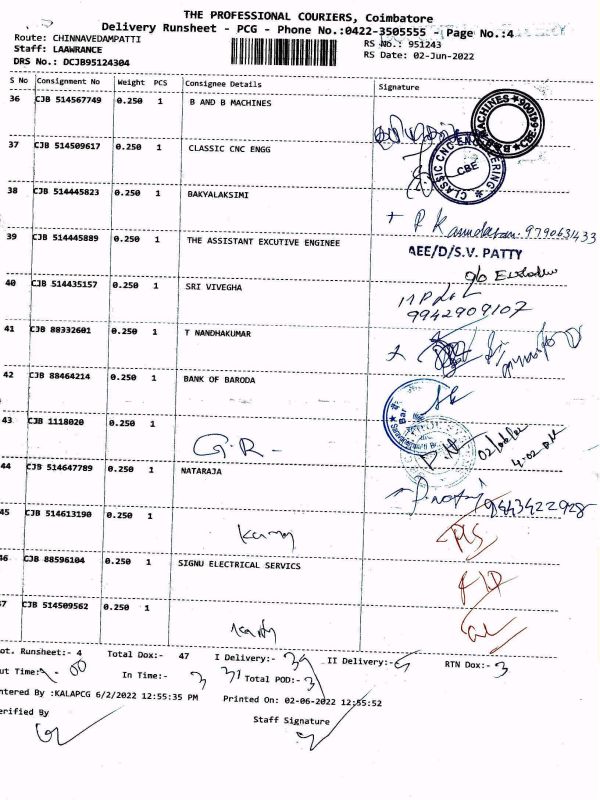 THE PROFESSIONAL COURIERS, Coimbatore
Delivery Runsheet - PCG - Phone No.:0422-3505555 - Page No.:4
Route: CHINNAVEDAMPATTI
RS No.: 951243
Staff: LAAWRANCE
RS Date: 02-Jun-2022
DRS No.: DCJB95124304
S No Consignment No Weight PCS Consignee Details Signature
36 CJB 514567749 0.250 1 B AND B MACHINES
37 CJB 514509617 0.250 1 CLASSIC CNC ENGG
CLASSIC CNC ENGINEERING
CBE
38 CJB 514445823 0.250 1 BAKYALAKSIMI
9790631433
39 CJB 514445889 0.250 1 THE ASSISTANT EXCUTIVE ENGINEE
AEE/D/S.V. PATTY
40 CJB 514435157 0.250 1 SRI VIVEGHA
9942909107
41 CJB 88332601 0.250 1 T NANDHAKUMAR
42 CJB 88464214 0.250 1 BANK OF BARODA
43 CJB 1118020 0.250 1
G.R-
4.02 PM
44 CJB 514647789 0.250 1 NATARAJA
9843422928
45 CJB 514613190 0.250 1
46 CJB 88596104 0.250 1 SIGNU ELECTRICAL SERVICS
47 CJB 514509562 0.250 1
ot. Runsheet:- 4 Total Dox:- 47 I Delivery:- 39 II Delivery:- RTN Dox:- 3
ut Time:- In Time:- Total POD:-
ntered By :KALAPCG 6/2/2022 12:55:35 PM Printed On: 02-06-2022 12:55:52
erified By
Staff Signature